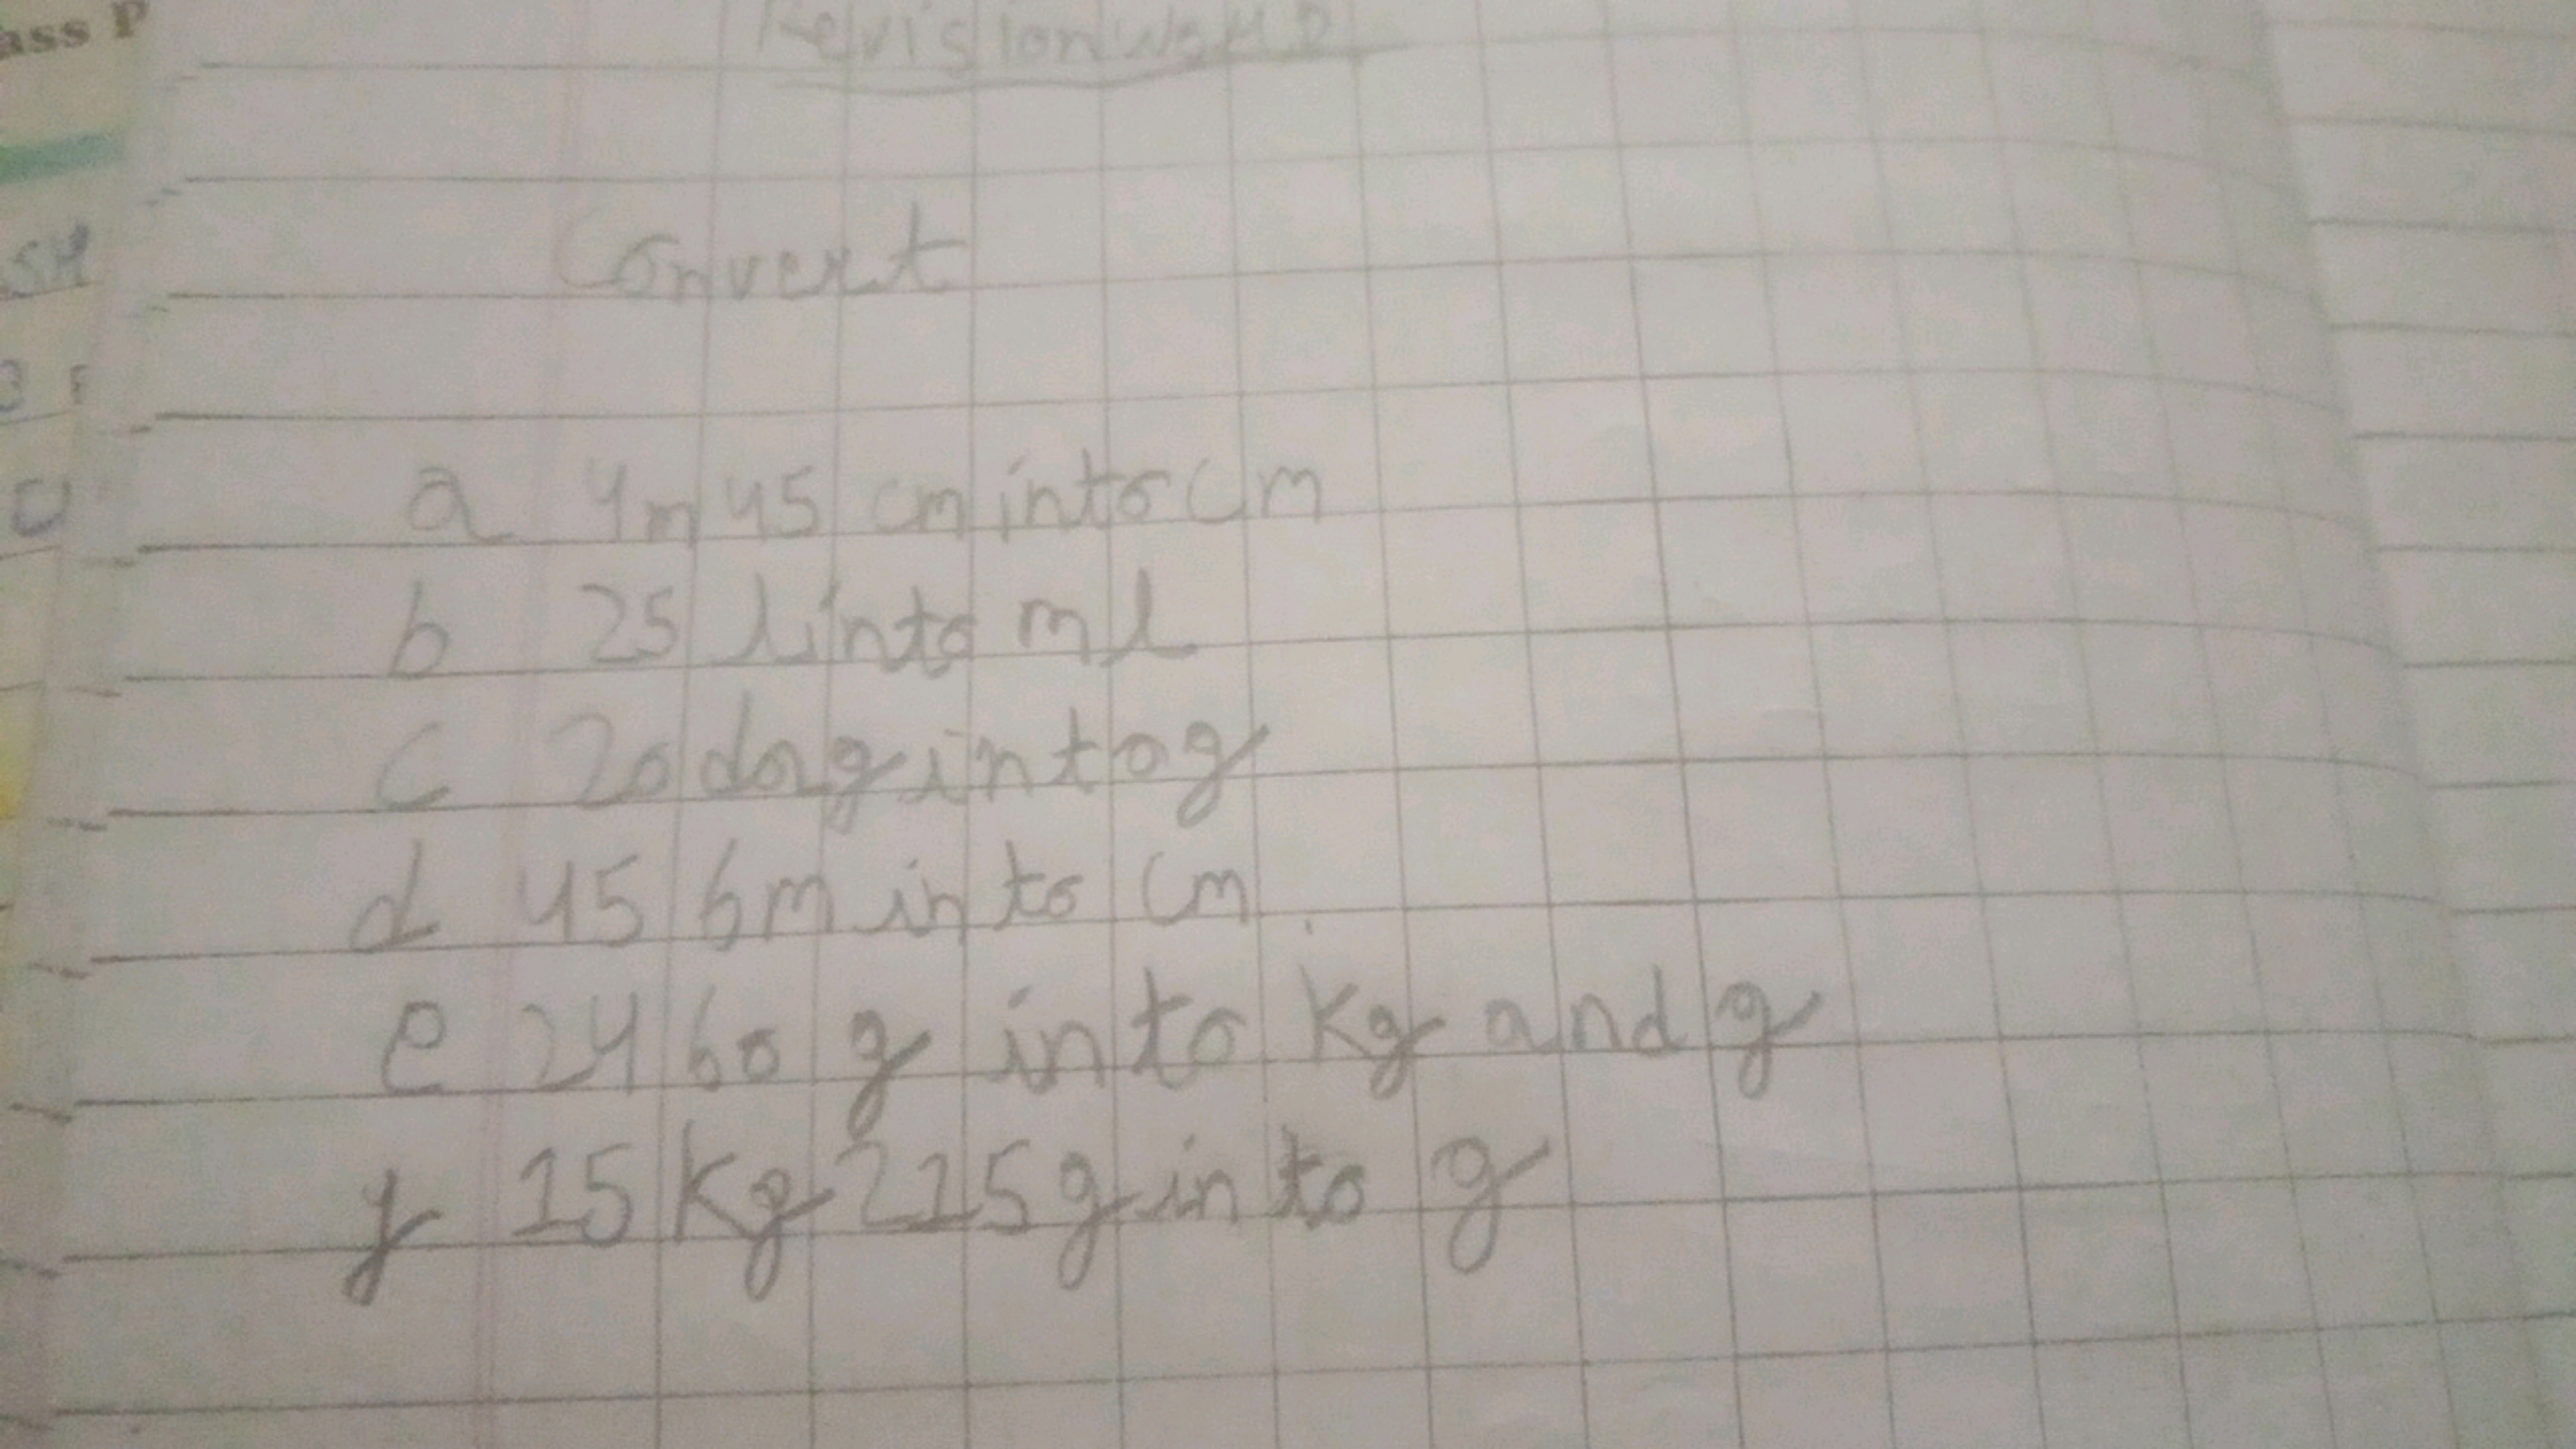 ass P
Revision
Convert
a 4m 45 cm into cm
b 25 l into ml
c 20 dag into g
d 45 6m into cm
e 2460 g into kg and g
f 15 kg 215g into g